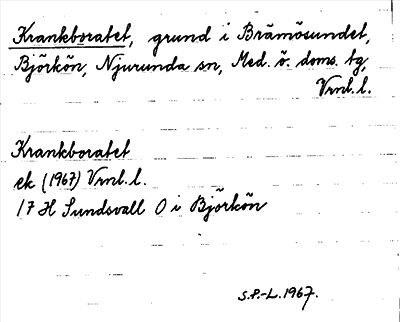 Krankboratet, grund i Brämösundet,
Björkön, Njurunda sn, Med. ö. doms. tg,
Vrnl. l.
Krankboratet
ek (1967) Vrnl. l.
17 H Sundsvall O i Björkön
S.P.-L. 1967.